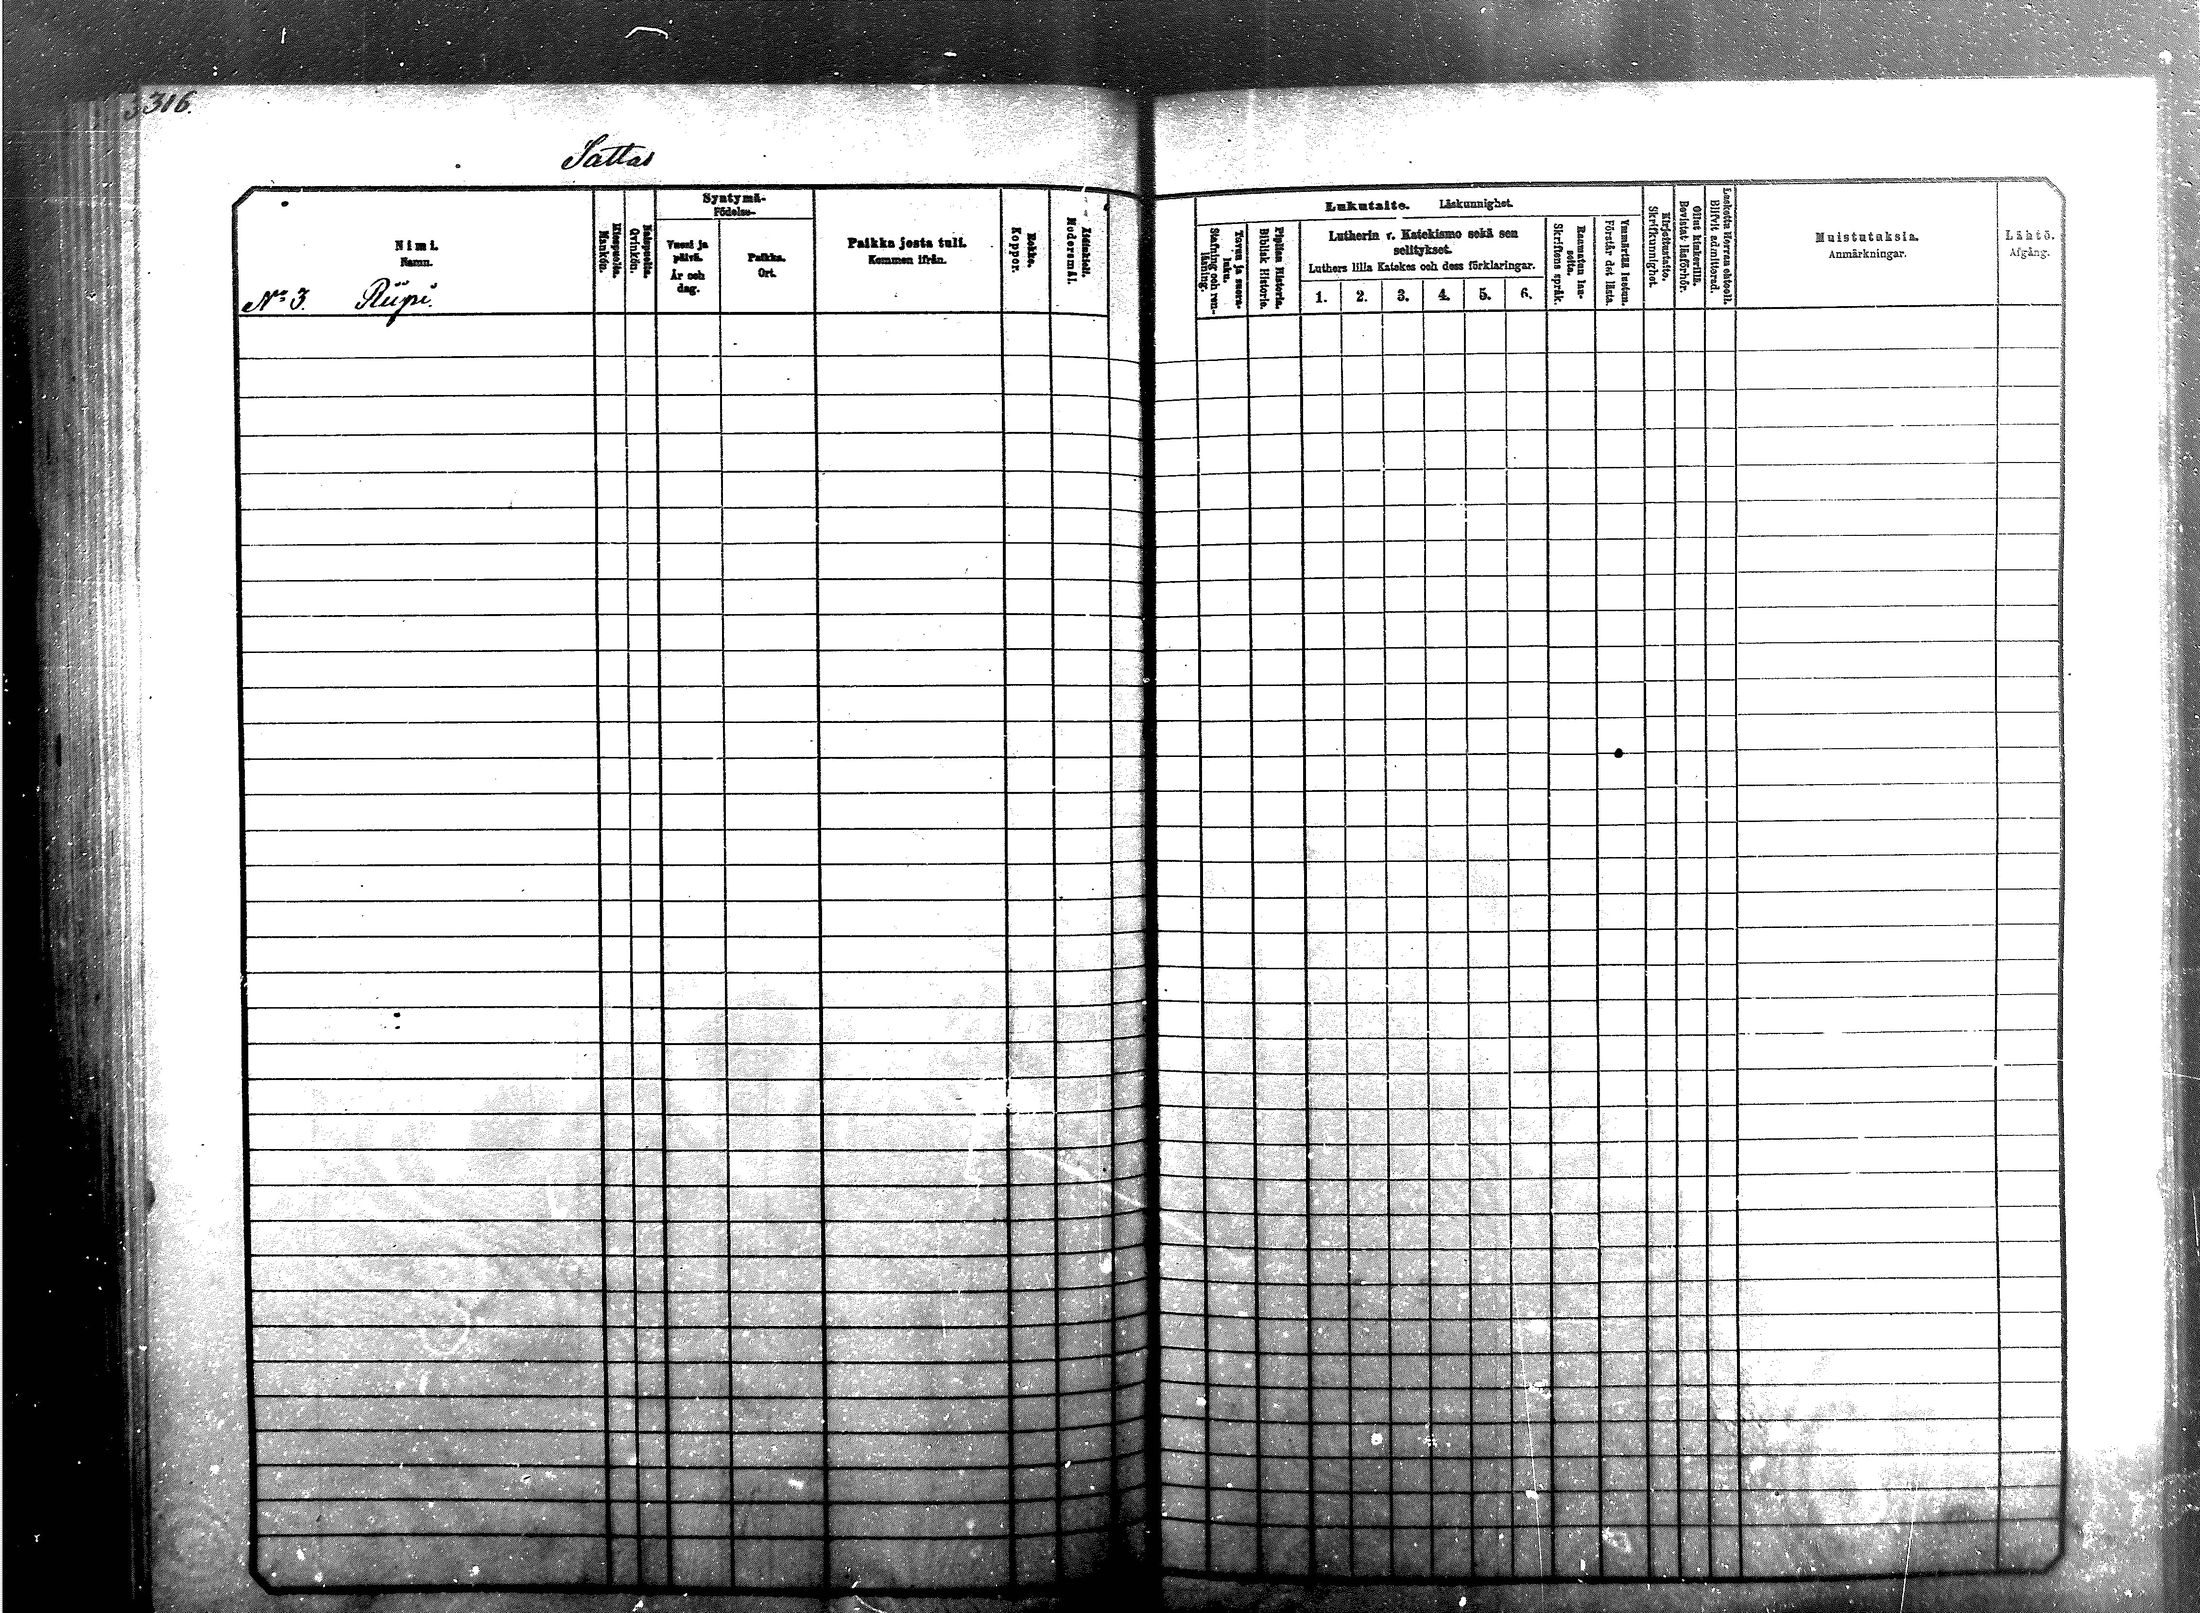 316.
Sattas
Nimi.
Namn.
No 3. Riipi.
Miespuolia.
Mankön.
Naispuolia.
Qvinkön.
Syntymä-
Födelse-
Vuosi ja
päivä.
År och
dag.
Paikka.
Ort.
Paikka josta tuli.
Kommen ifrån.
Rokko.
Koppor.
Äidinkieli.
Modersmål.
Lukutaito. Läskunnighet.
Tavuu ja suora-
luku.
Stafning och ren-
läsning.
Piplian Historia.
Biblisk Historia.
Lutherin v. Katekismo sekä sen
selitykset.
Luthers lilla Katekes och dess förklaringar.
1. 2. 3. 4. 5. 6.
Raamatun lau-
seita.
Skriftens språk.
Ymmärtää luetun.
Förstår det lästa.
Kirjoitustaito.
Skrifkunnighet.
Ollut kinkerillä.
Bevistat läsförhör.
Laskettu Herran ehtooll.
Blifvit admitterad.
Muistutuksia.
Anmärkningar.
Lähtö.
Afgång.